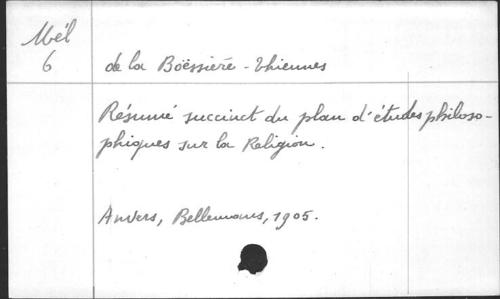 Mél
6
de la Boëssière - Thiennes
Résumé succinct du plan d'études philoso-
phiques sur la Religion.
Anvers, Bellemans, 1905.